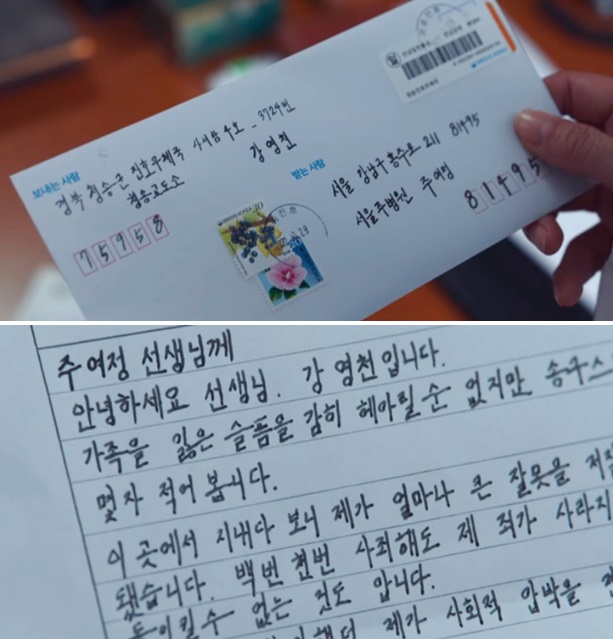 보내는 사람
경북 청송군 진보우체국 사서함 4호 - 3729번
경북교도소
강영천
75958
받는 사람
서울 강남구 홍수로 211 81495
서울주병원 주여정
81495
주여정 선생님께
안녕하세요 선생님. 강 영천입니다.
가족을 잃은 슬픔을 감히 헤아릴 순 없지만 송구스
몇자 적어 봅니다.
이 곳에서 지내다 보니 제가 얼마나 큰 잘못을 저
됐습니다. 백번 천번 사죄해도 제 죄가 사라지
돌이킬 수 없는 것도 압니다.
제가 사회적 압박을